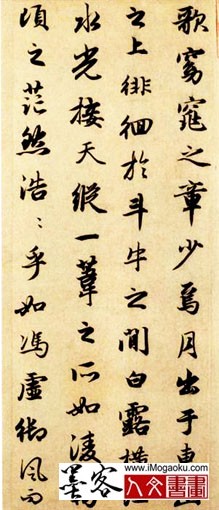 歌窈窕之章少焉月出于東山
之上徘徊於斗牛之間白露橫江
水光接天縱一葦之所如凌萬
頃之茫然浩〻乎如馮虛御風而
www.iMogaoku.com
墨客 人文書畫